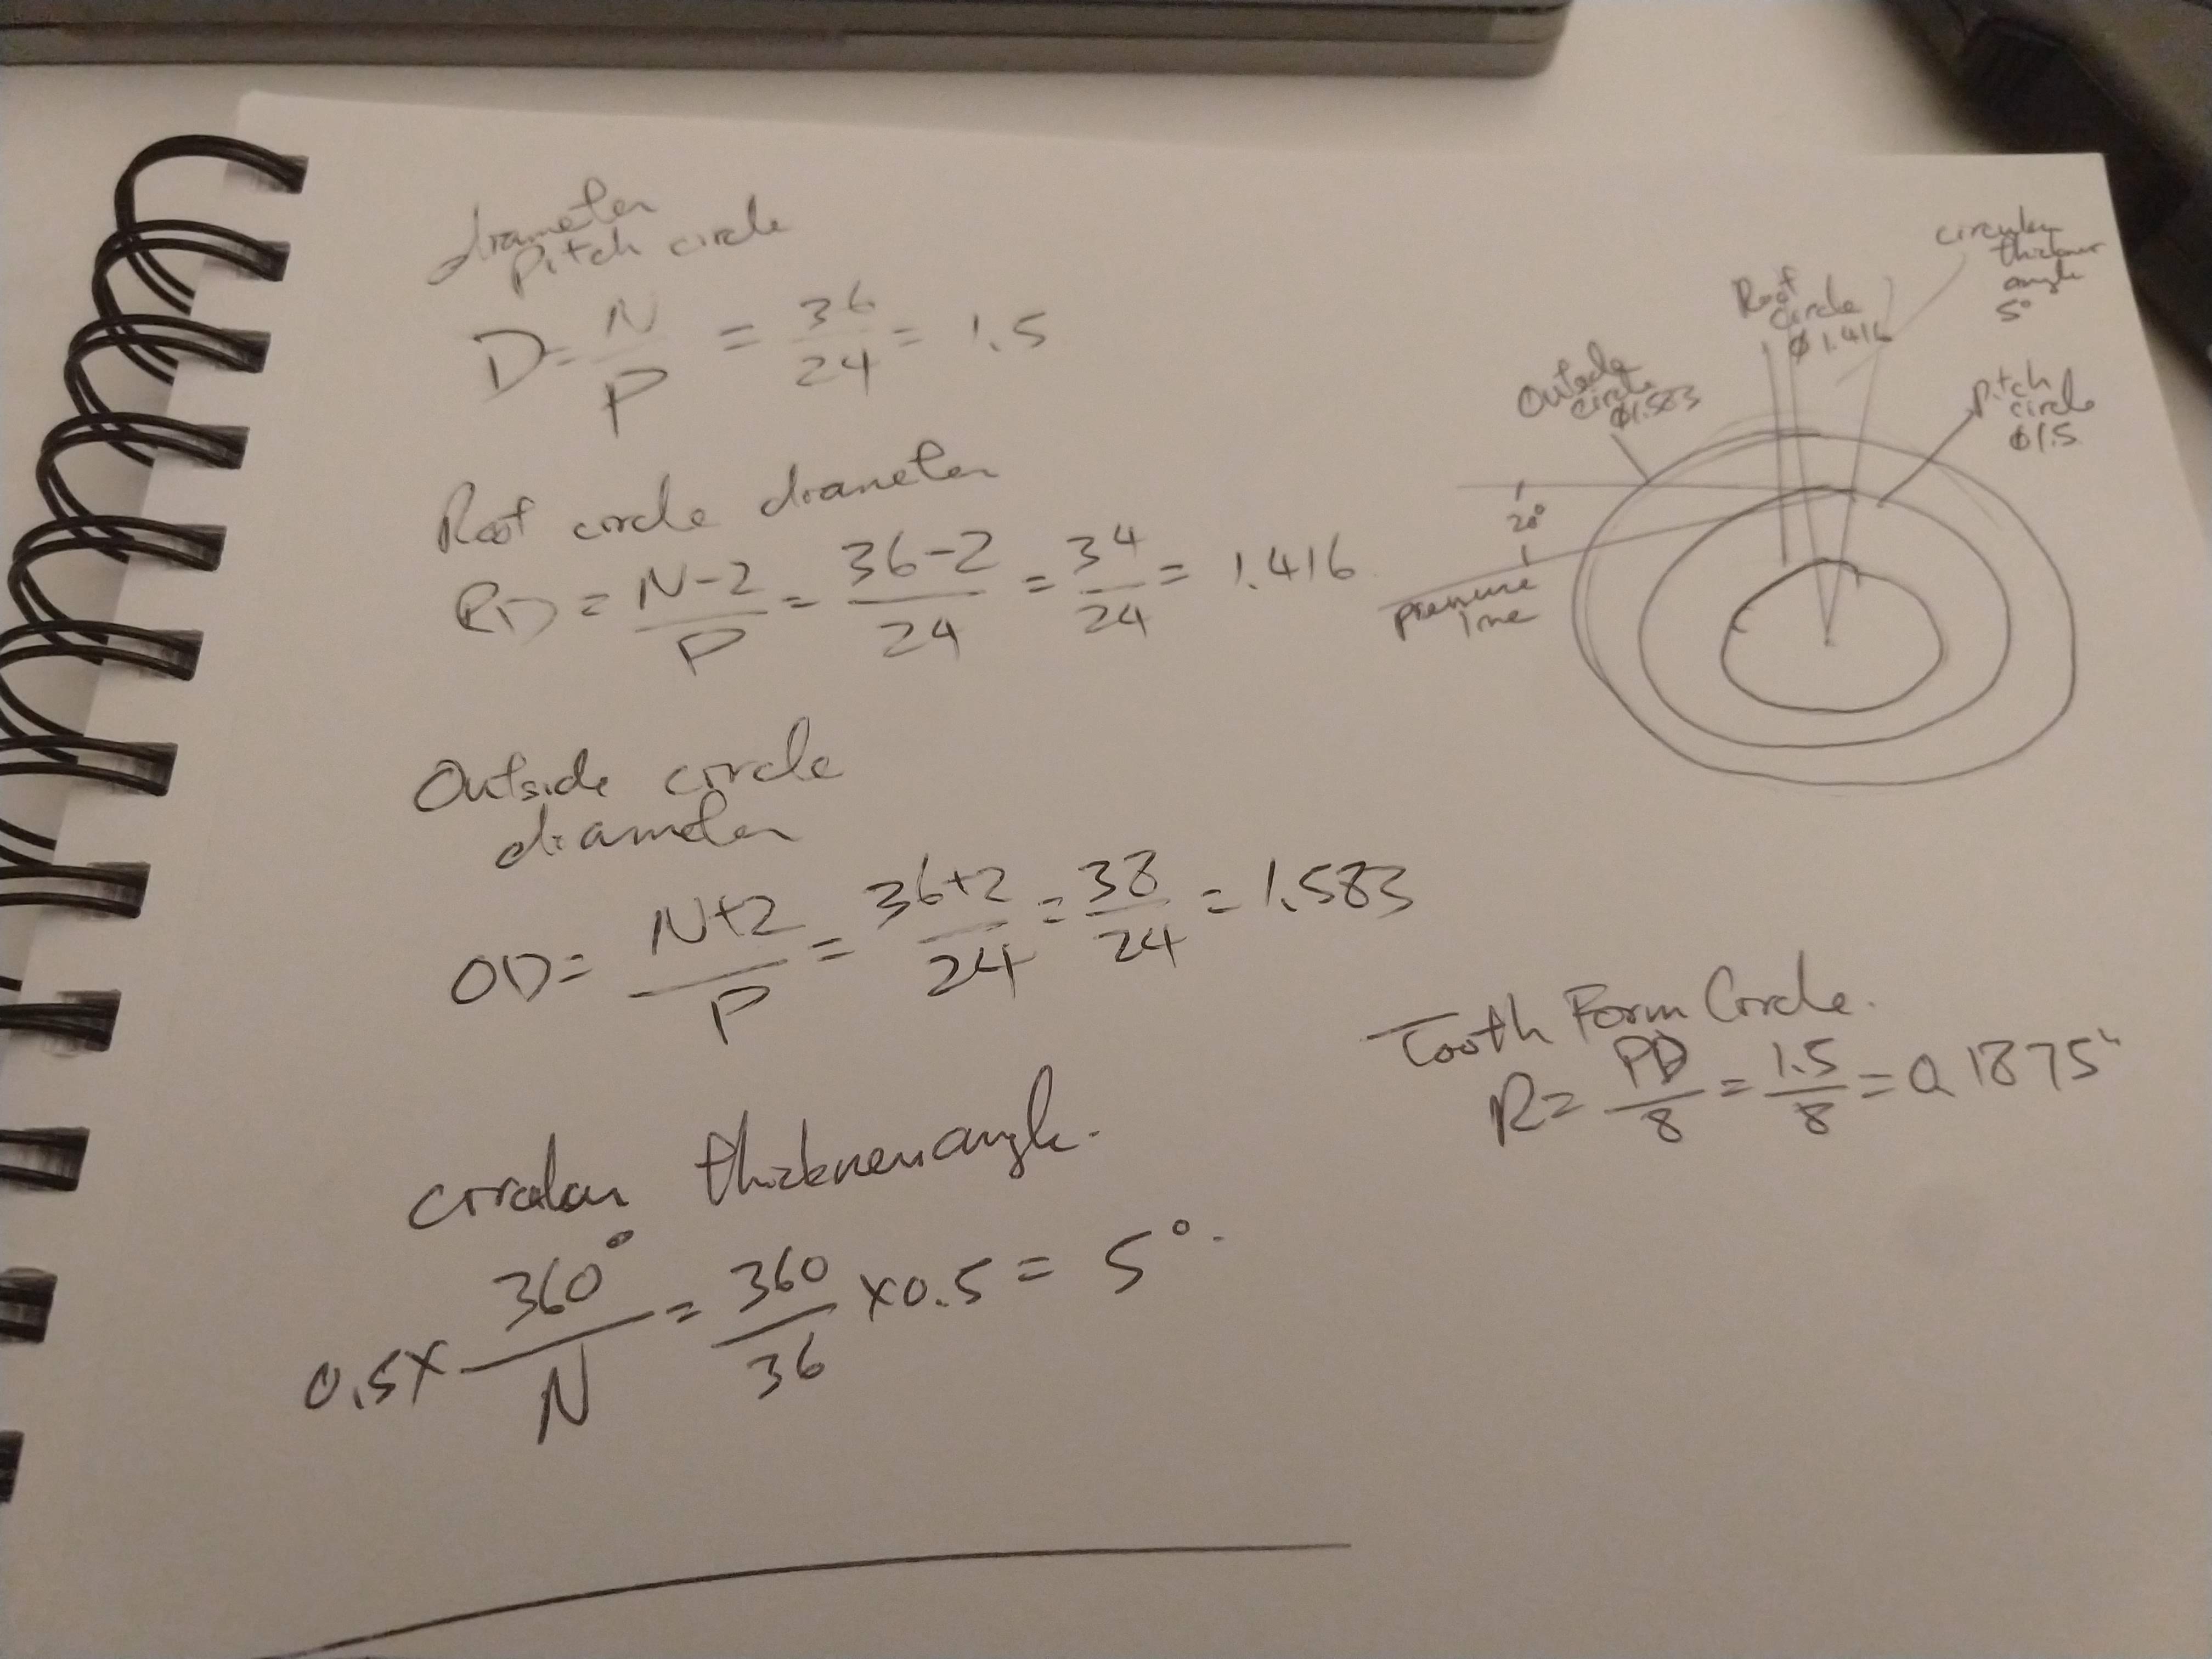 diameter
Pitch circle
D = N/P = 36/24 = 1.5
Root circle diameter
RD = N-2/P = 36-2/24 = 34/24 = 1.416
Outside circle
diameter
OD = N+2/P = 36+2/24 = 38/24 = 1.583
circular thickness angle.
0.5 x 360°/N = 360/36 x 0.5 = 5°.
circular
thickness
angle
5°
Root
circle
Ø 1.416
Outside
circle
Ø1.583
Pitch
circle
Ø1.5
20°
pressure
line
Tooth Form Circle.
R = PD/8 = 1.5/8 = 0.1875"